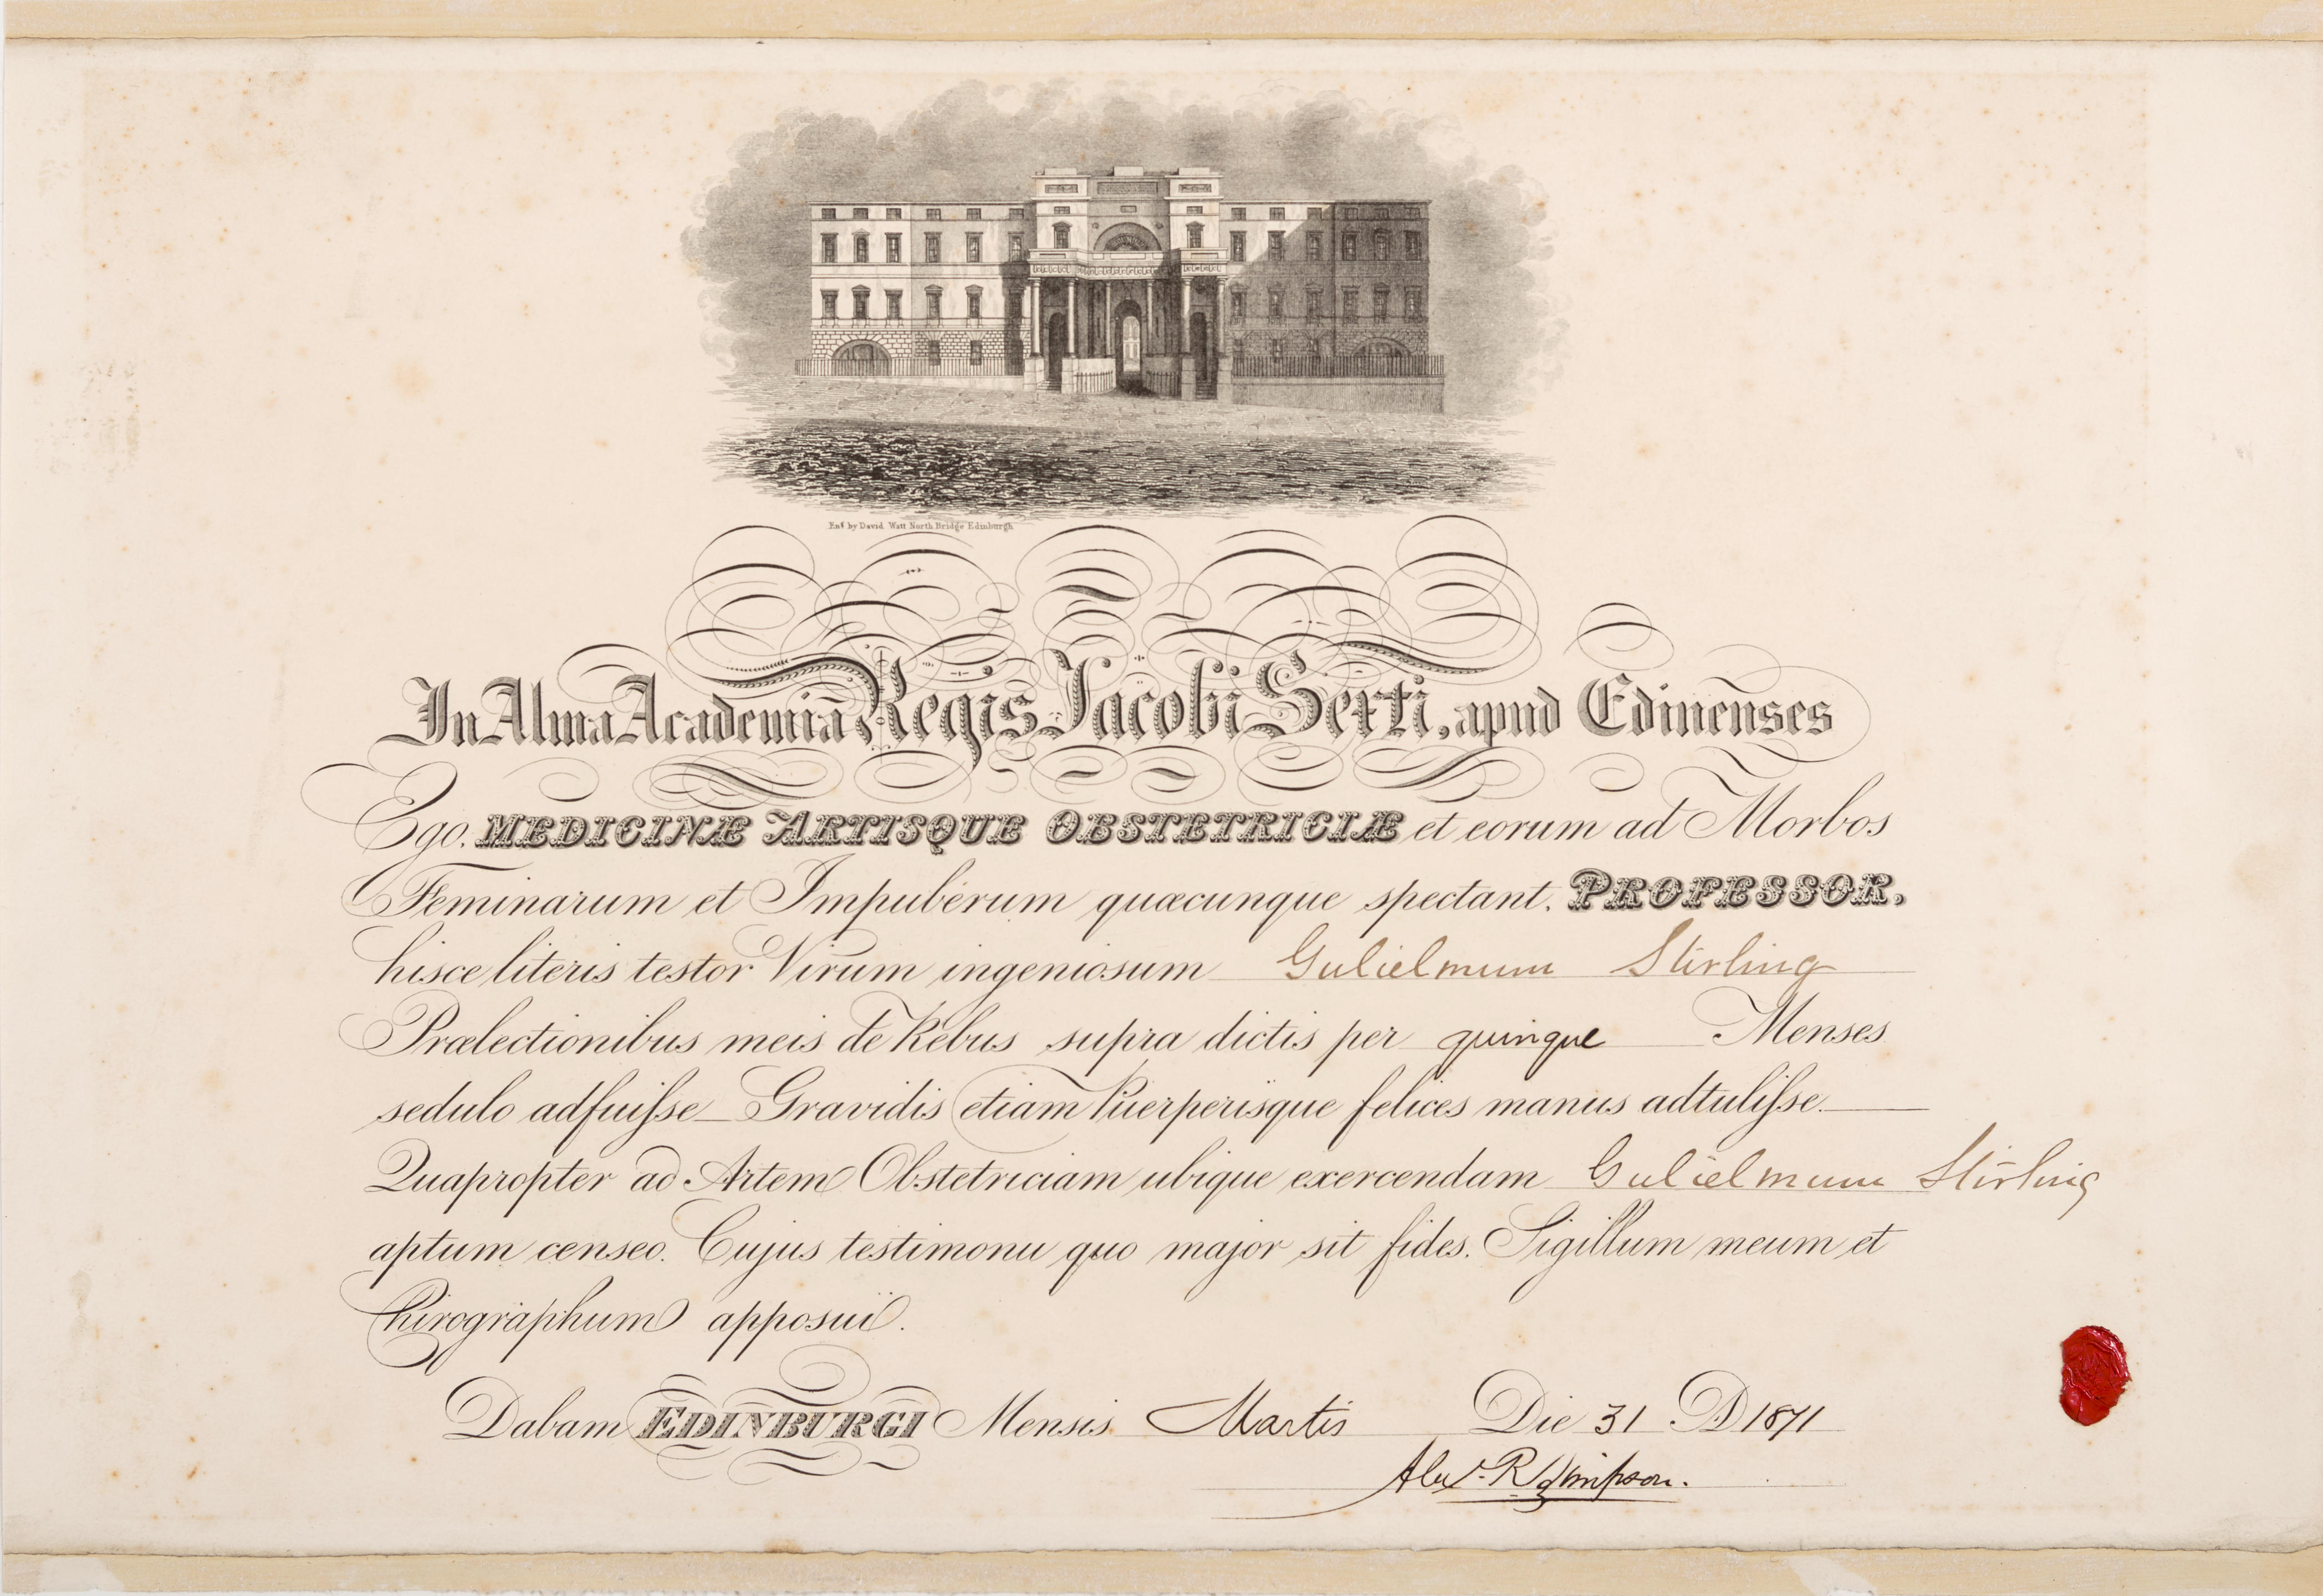 Eng. by David Watt North Bridge Edinburgh
In Alma Academia Regis Jacobi Sexti, apud Edinenses
Ego. MEDICINÆ ARTISQUE OBSTETRICIÆ et eorum ad Morbos
Feminarum et Impuberum quæcunque spectant. PROFESSOR,
hisce literis testor Virum ingeniosum Gulielmum Stirling
Prælectionibus meis de Rebus supra dictis per quinque Menses
sedulo adfuiſse_ Gravidis etiam Puerperisque felices manus adtuliſse.
Quapropter ad Artem Obstetriciam ubique exercendam Gulielmum Stirling
aptum censeo. Cujus testimonii quo major sit fides. Sigillum meum et
Chirographum apposui.
Dabam EDINBURGI Mensis Martis Die 31 AD 1871
Alexr. R Simpson.